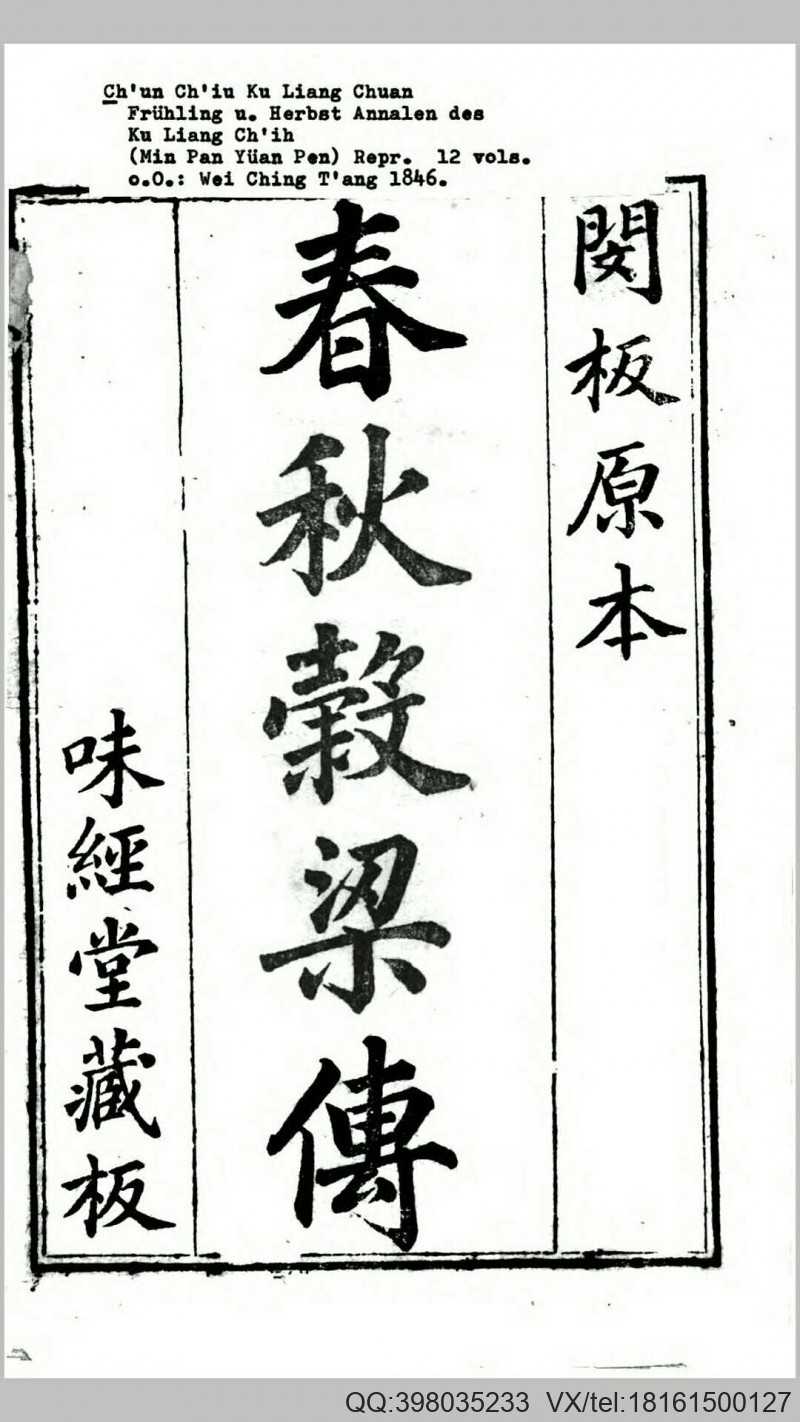 Ch'un Ch'iu Ku Liang Chuan
Frühling u. Herbst Annalen des
Ku Liang Ch'ih
(Min Pan Yüan Pen) Repr. 12 vols.
o.O.: Wei Ching T'ang 1846.
閔板原本
春秋榖梁傳
味經堂藏板
QQ:398035233 VX/tel:18161500127